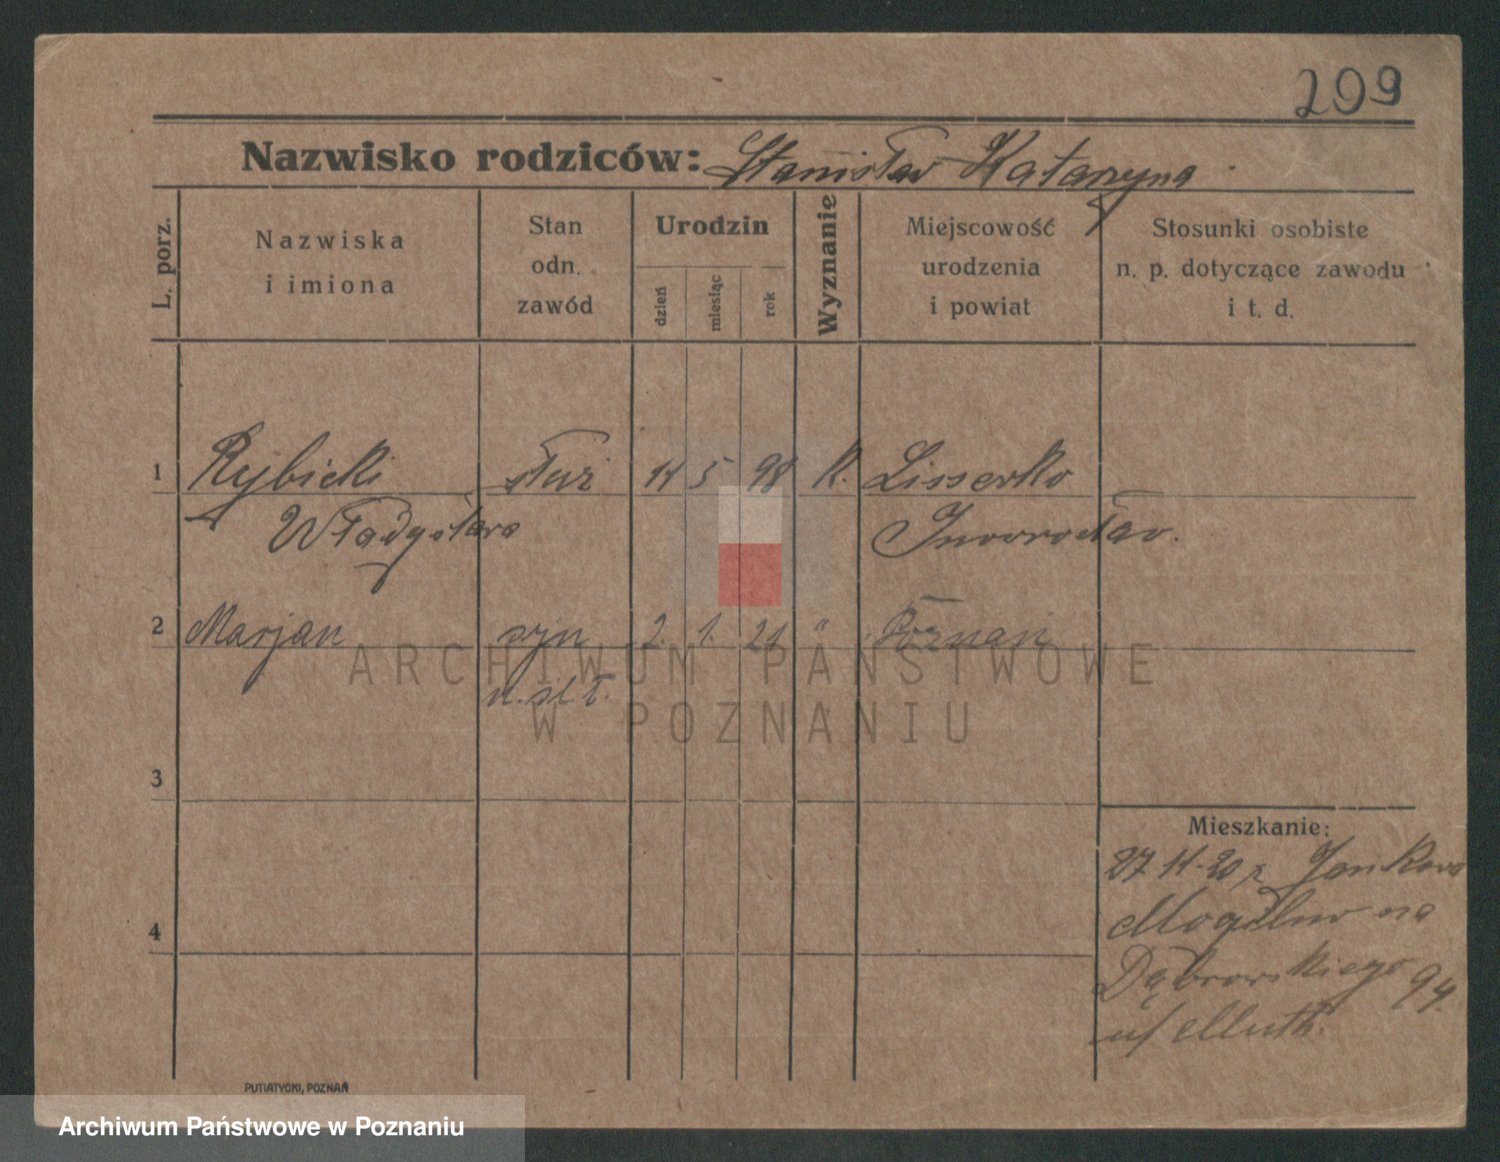 209
Nazwisko rodziców: Stanisław Katarzyna
L. porz.
Nazwiska
i imiona
Stan
odn.
zawód
Urodzin
dzień
miesiąc
rok
Wyznanie
Miejscowość
urodzenia
i powiat
Stosunki osobiste
n. p. dotyczące zawodu
i t. d.
1 Rybicki służ 14 5 98 K. Lissewko
Władysława Inowrocław.
2 Marjan syn 2. 1. 21 " Poznań
3
4
Mieszkanie:
27 11-20 z Jankowo
Mogilno na
Dąbrowskiego 94.
u/ Muth.
PUTIATYCKI, POZNAŃ
ARCHIWUM PAŃSTWOWE
W POZNANIU
Archiwum Państwowe w Poznaniu